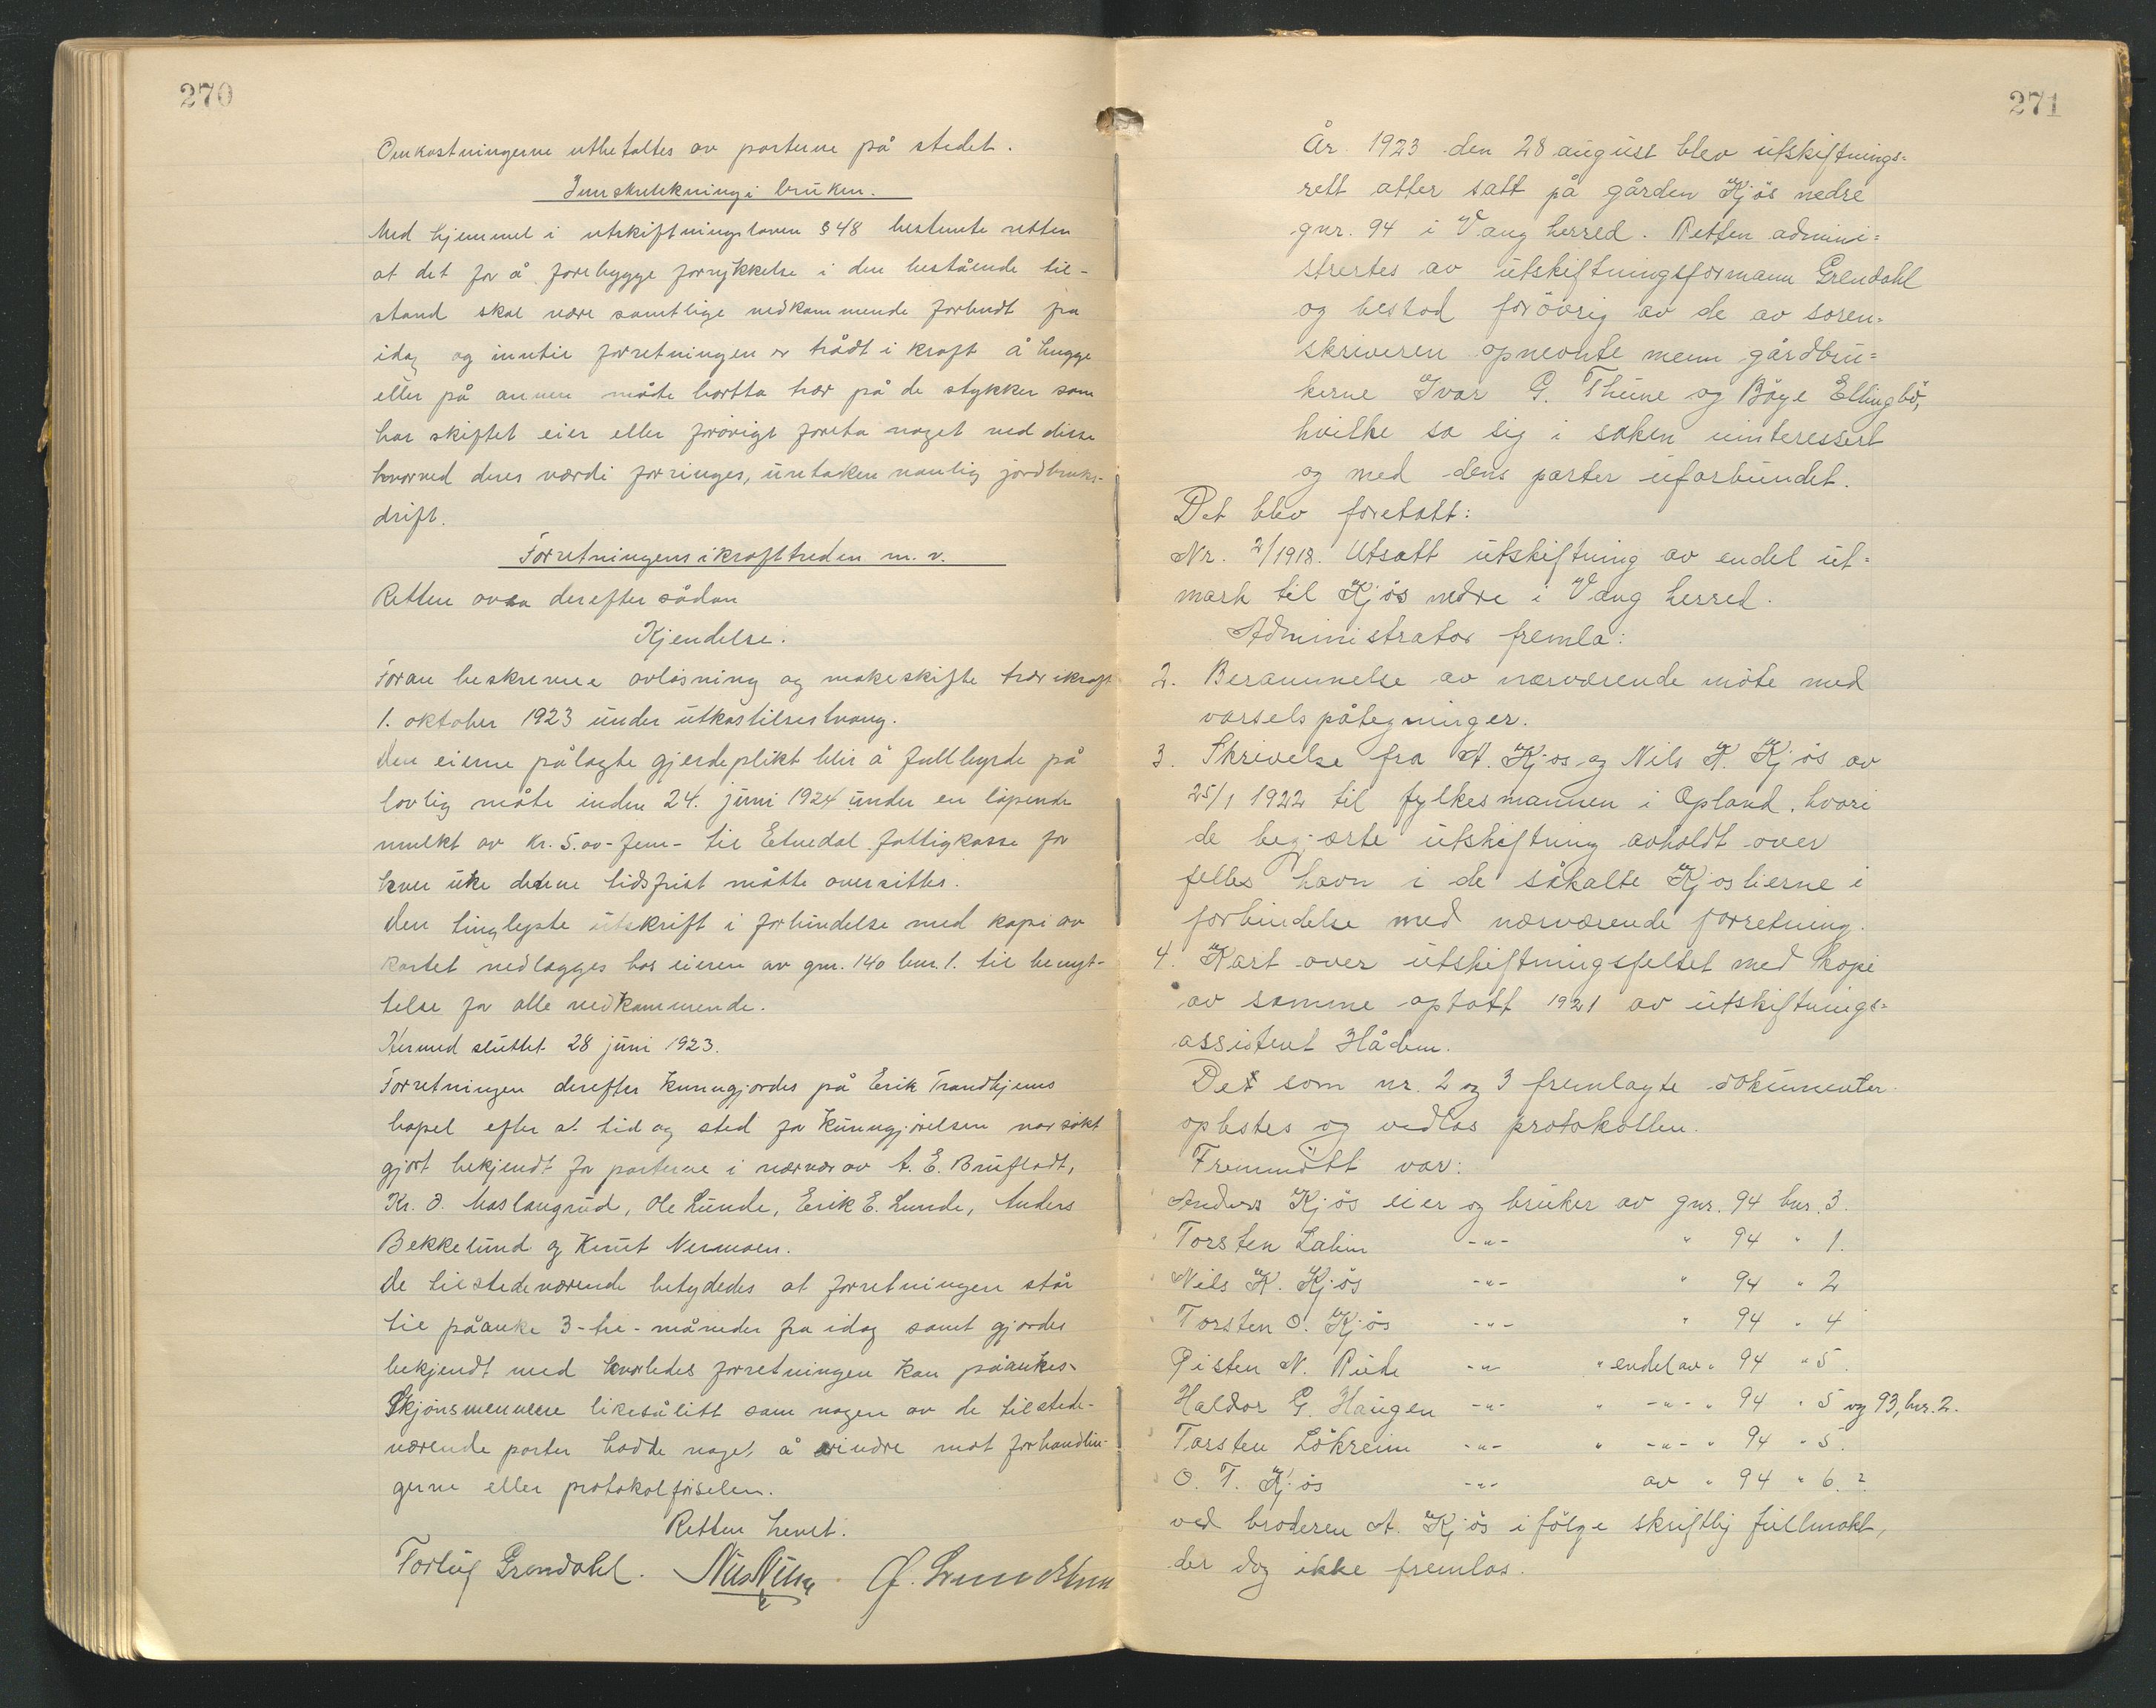 270
Omkostningerne utbetaltes av parterne på stedet.
Innskrenkning i bruken.
Med hjemmel i utskiftningsloven § 48 bestemte retten
at det for å forebygge forrykkelse i den bestående til-
stand skal være samtlige vedkommende forbudt fra
idag og inntil forretningen er trådt i kraft å hugge
eller på annen måte bortta trær på de stykker som
har skiftet eier eller forøvrigt foreta noget ved disse
hvorved deres værdi forringes, undtaken vanlig jordbruks-
drift.
Forretningens ikrafttreden m. v.
Retten avsa derefter sådan
Kjendelse.
Foran beskrevne avløsning og makeskifte trær ikraft
1. oktober 1923 under utkastelsestvang.
Den eierne pålagte gjerdeplikt blir å fullbyrde på
lovlig måte inden 24. juni 1924 under en løpende
mulkt av kr. 5.00 - fem - til Etnedal fattigkasse for
hver uke denne tidsfrist måtte oversittes.
Den tinglyste utskrift i forbindelse med kopi av
kartet nedlægges hos eieren av gnr. 140 bnr. 1. til benyt-
telse for alle vedkommende.
Hermed sluttet 28 juni 1923.
Forretningen derefter kunngjordes på Erik Trondhjems
hapel efter at tid og sted for kunngjørelsen var søkt
gjort bekjendt for parterne i nærvær av A. E. Brufladt,
Kr. O. Maslangrud, Ole Lunde, Erik E. Lunde, Anders
Bekkelund og Knut Nermoen.
De tilstedeværende betydedes at forretningen står
til påanke 3 - tre - måneder fra idag samt gjordes
bekjendt med hvorledes forretningen kan påankes.
Skjønsmennene likesålitt som nogen av de tilstede-
værende parter hadde noget å erindre mot forhandlin-
gerne eller protokolførselen.
Retten hevet.
Torleif Grendahl.
271
År 1923 den 28 august blev utskiftnings=
rett atter satt på gården Kjös nedre
gnr. 94 i Vang herred. Retten admini=
strertes av utskiftningsformann Grendahl
og bestod forövrig av de av soren=
skriveren opnevnte menn gårdbru=
kerne Ivar G. Thune og Böye Ellingbö,
hvilke sa sig i saken uinteressert
og med dens parter uforbundet.
Det blev foretatt:
Nr. 2/1918. Utsatt utskiftning av endel ut=
mark til Kjös nedre i Vang herred.
Administrator fremla:
2. Berammelse av nærværende möte med
varselspåtegninger.
3. Skrivelse fra A. Kjos og Nils K. Kjös av
25/1 1922 til fylkesmannen i Opland, hvori
de begjærte utskiftning avholdt over
felles havn i de såkalte Kjoslierne i
forbindelse med nærværende forretning.
4. Kart over utskiftningsfeltet med kopi
av samme optatt 1921 av utskiftnings=
assistent Hådem.
De som nr. 2 og 3 fremlagte dokumenter
oplestes og vedlas protokollen.
Fremmött var:
Anders Kjös eier og bruker av gnr. 94 bnr. 3.
Torsten Lahim -"- " 94 " 1.
Nils K. Kjös -"- " 94 " 2
Torsten O. Kjös -"- " 94 " 4
Gisten N. Rude -"- " endel av " 94 " 5.
Haldor G. Haugen -"- " -"- " 94 " 5 og 93, bnr. 2.
Torsten Lökreim -"- " -"- " 94 " 5.
O. T. Kjös -"- av " 94 " 6. 2
ved broderen A. Kjös ifölge skriftlig fullmakt,
der dog ikke fremlas.